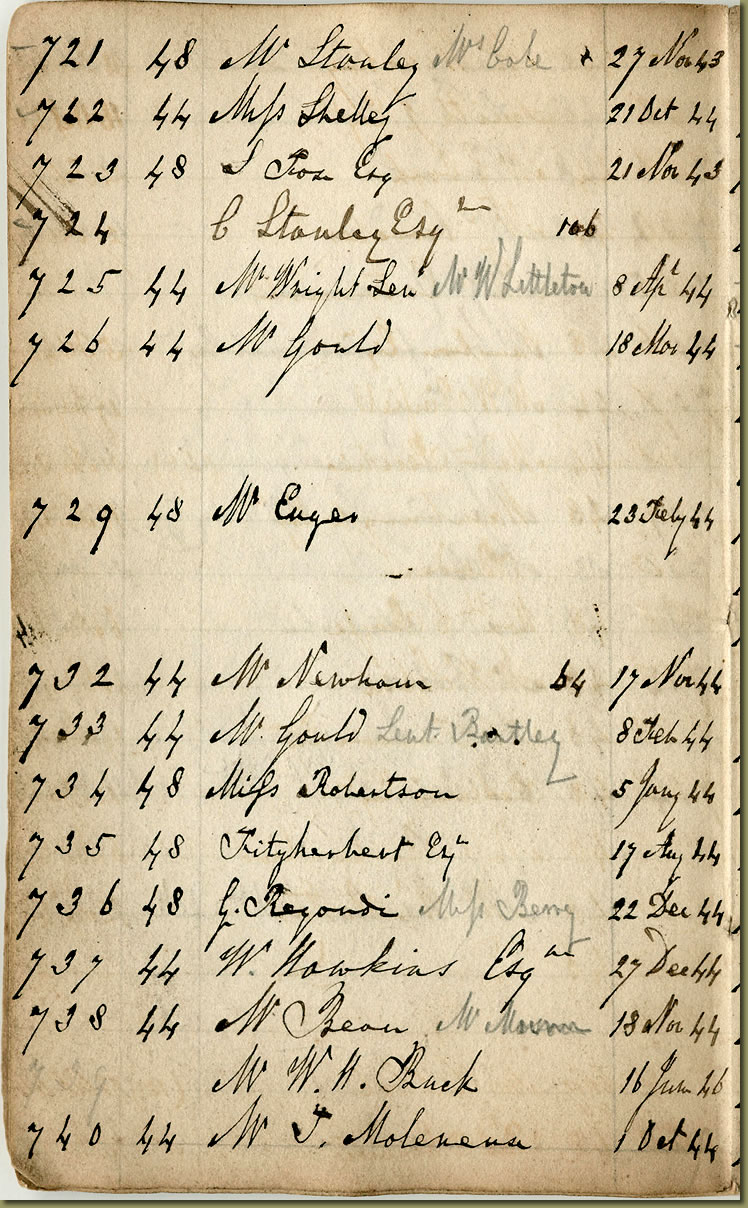 721 48 Mr Stanley Mrs Cole + 27 Nov 43
722 44 Miss Shelley 21 Oct 44
723 48 S Fox Esq 21 Nov 43
724 C Stanley Esqre 106
725 44 Mr Wright Sen Mr W Littleton 8 Apl 44
726 44 Mr Gould 18 Mar 44
729 48 Mr Enger 23 Feby 44
732 44 Mr Newham 64 17 Nov 44
733 44 Mr Gould Leut. Bartley 8 Feb 44
734 48 Miss Robertson 5 Jany 44
735 48 Fitzherbert Esqr 17 Aug 44
736 48 G. Regondi Miss Berry 22 Dec 44
737 44 W. Hawkins Esqre 27 Dec 44
738 44 Mr Bean Mr 18 Nov 44
739 Mr W. H. Buck 16 June 46
740 44 Mr T. 1 Oct 44